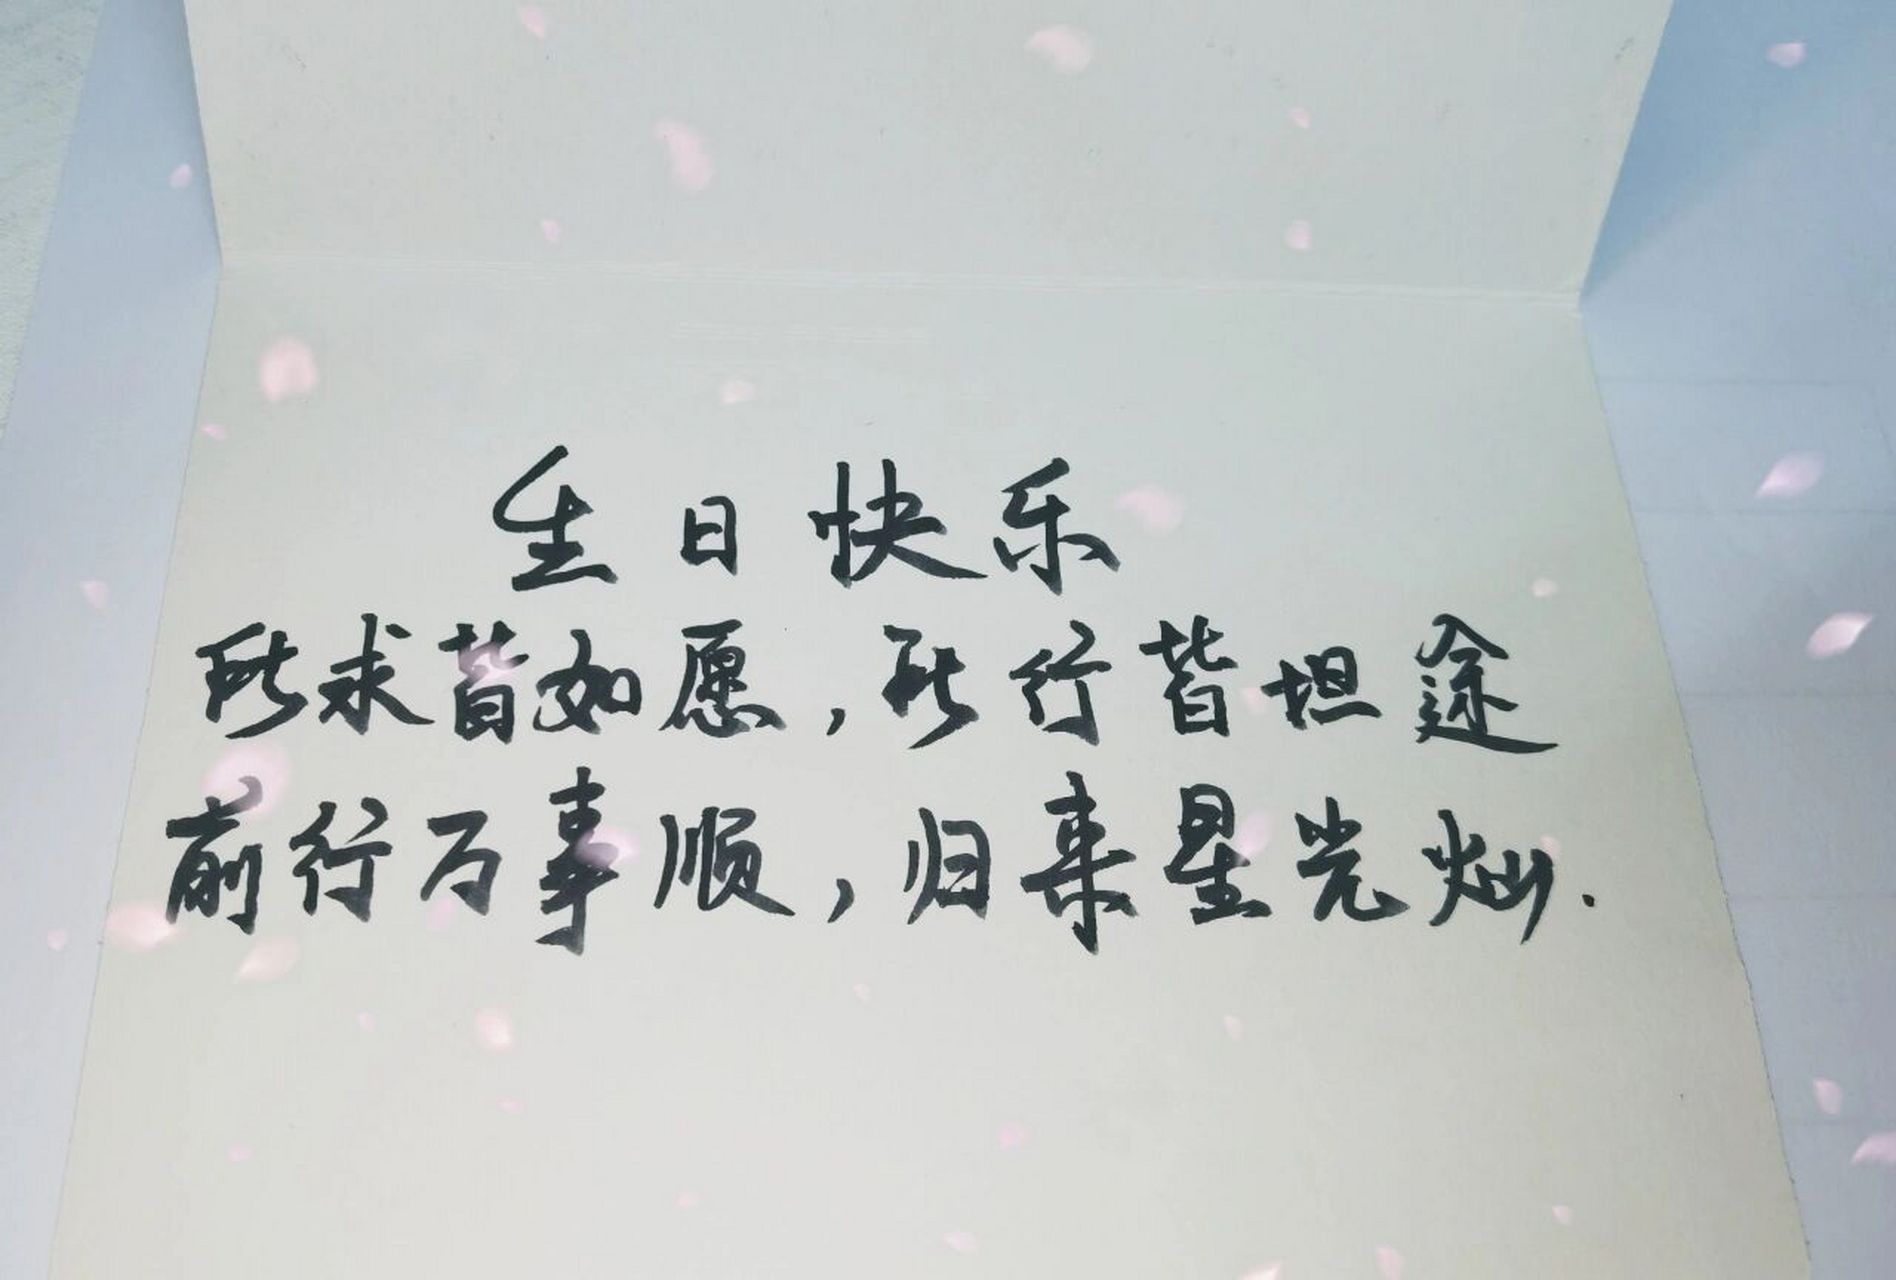 生日快乐
所求皆如愿，所行皆坦途
前行万事顺，归来星光灿.